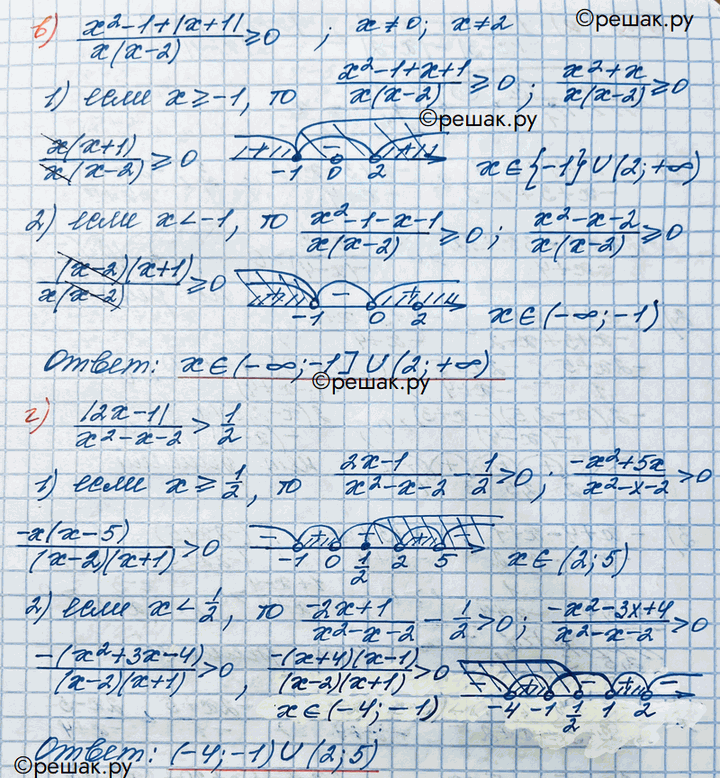 ©решак.ру
в) (x²-1+|x+1|)/(x(x-2)) ≥ 0 ; x ≠ 0; x ≠ 2
1) если x ≥ -1, то (x²-1+x+1)/(x(x-2)) ≥ 0 ; (x²+x)/(x(x-2)) ≥ 0
©решак.ру
x(x+1)/(x(x-2)) ≥ 0 + - + -1 0 2 x ∈ {-1} ∪ (2; +∞)
2) если x < -1, то (x²-1-x-1)/(x(x-2)) ≥ 0 ; (x²-x-2)/(x·(x-2)) ≥ 0
(x-2)(x+1)/(x(x-2)) ≥ 0 + - + -1 0 2 x ∈ (-∞; -1)
Ответ: x ∈ (-∞; -1] ∪ (2; +∞)
©решак.ру
г) |2x-1|/(x²-x-2) > 1/2
1) если x ≥ 1/2, то (2x-1)/(x²-x-2) - 1/2 > 0 ; (-x²+5x)/(x²-x-2) > 0
-x(x-5)/((x-2)(x+1)) > 0 - + - + - -1 0 1/2 2 5 x ∈ (2; 5)
2) если x < 1/2, то (-2x+1)/(x²-x-2) - 1/2 > 0 ; (-x²-3x+4)/(x²-x-2) > 0
-(x²+3x-4)/((x-2)(x+1)) > 0 , -(x+4)(x-1)/((x-2)(x+1)) > 0 - + - + - -4 -1 1/2 1 2
x ∈ (-4; -1)
Ответ: (-4; -1) ∪ (2; 5)
©решак.ру